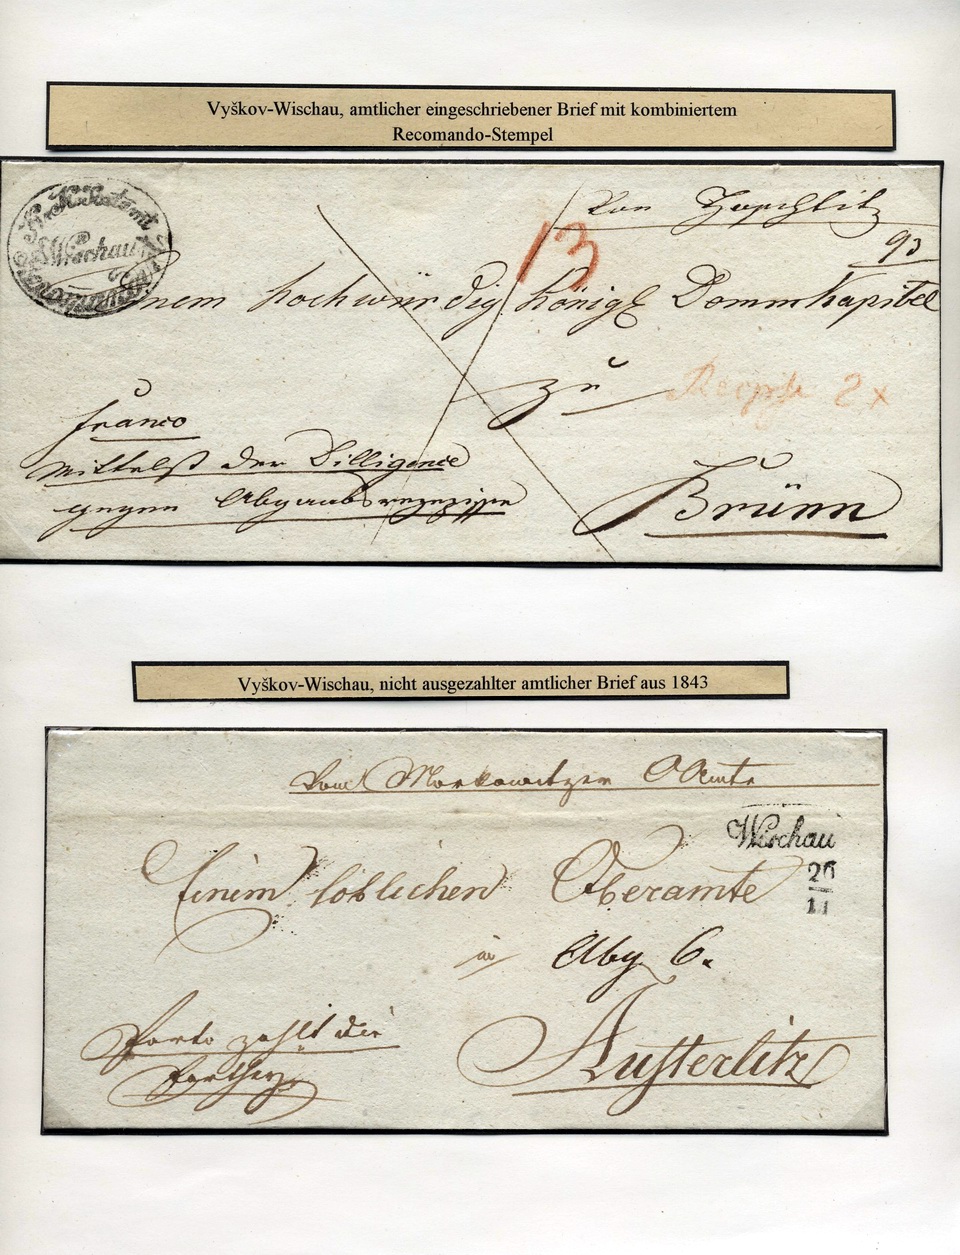 Vyškov-Wischau, amtlicher eingeschriebener Brief mit kombiniertem
Recomando-Stempel
K. K. Postamt
Wischau
Recommandirt
Von
93
13
Einem hochwürdig königl Dommkapitel
zu
2x
Franco
mittelst der Dilligence
gegen Abgaabsrezepisse
Brünn
Vyškov-Wischau, nicht ausgezahlter amtlicher Brief aus 1843
Vom Morkowitzer OAmte
Wischau
26
11
Einem löblichen Oberamte
in Abg 6.
Porto zahlt die
Parthey
Austerlitz